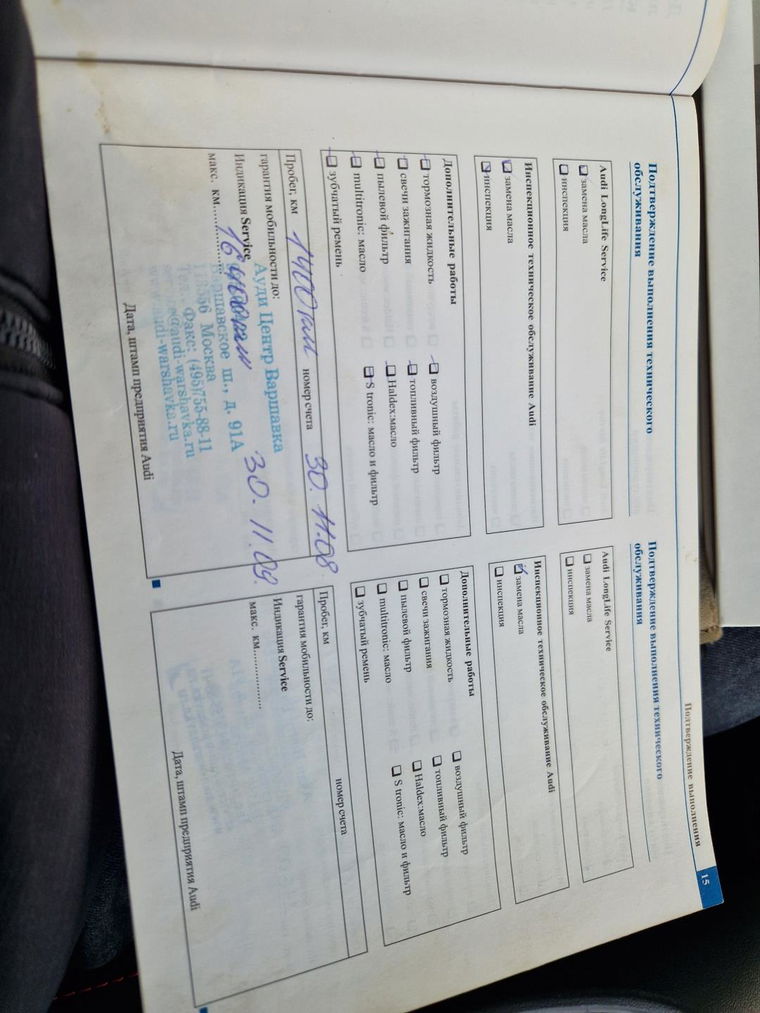 Подтверждение выполнения
15
Подтверждение выполнения технического
обслуживания
Audi LongLife Service
замена масла
инспекция
Инспекционное техническое обслуживание Audi
замена масла
инспекция
Дополнительные работы
тормозная жидкость
воздушный фильтр
свечи зажигания
топливный фильтр
пылевой фильтр
Haldex:масло
multitronic: масло
S tronic: масло и фильтр
зубчатый ремень
Пробег, км 1400 км номер счета 30.11.08
гарантия мобильности до:
Ауди Центр Варшавка
Индикация Service
30.11.09
макс. км. 16400 км
шавское ш., д. 91А
Москва
Факс: (495)755-88-11
@audi-warshavka.ru
www.audi-warshavka.ru
Дата, штамп предприятия Audi
Подтверждение выполнения технического
обслуживания
Audi LongLife Service
замена масла
инспекция
Инспекционное техническое обслуживание Audi
замена масла
инспекция
Дополнительные работы
тормозная жидкость
воздушный фильтр
свечи зажигания
топливный фильтр
пылевой фильтр
Haldex:масло
multitronic: масло
S tronic: масло и фильтр
зубчатый ремень
Пробег, км номер счета
гарантия мобильности до:
Индикация Service
макс. км...................
Дата, штамп предприятия Audi